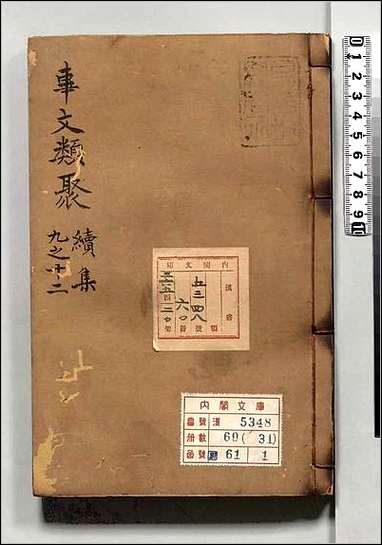 事文類聚
續集
九之十二
内閣文庫
漢書
五三四八
六〇
號
内閣文庫
番號 漢 5348
冊數 60(31)
函號 61 1
0 1 2 3 4 5 6 7 8 9 10